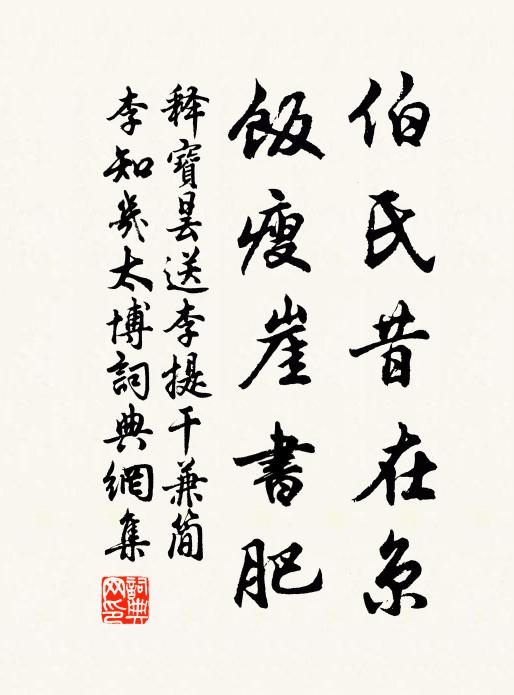 伯氏昔在京
飯瘦崖書肥
釋寶曇送李提干兼簡
李知幾太博詞典網集
詞典
网印